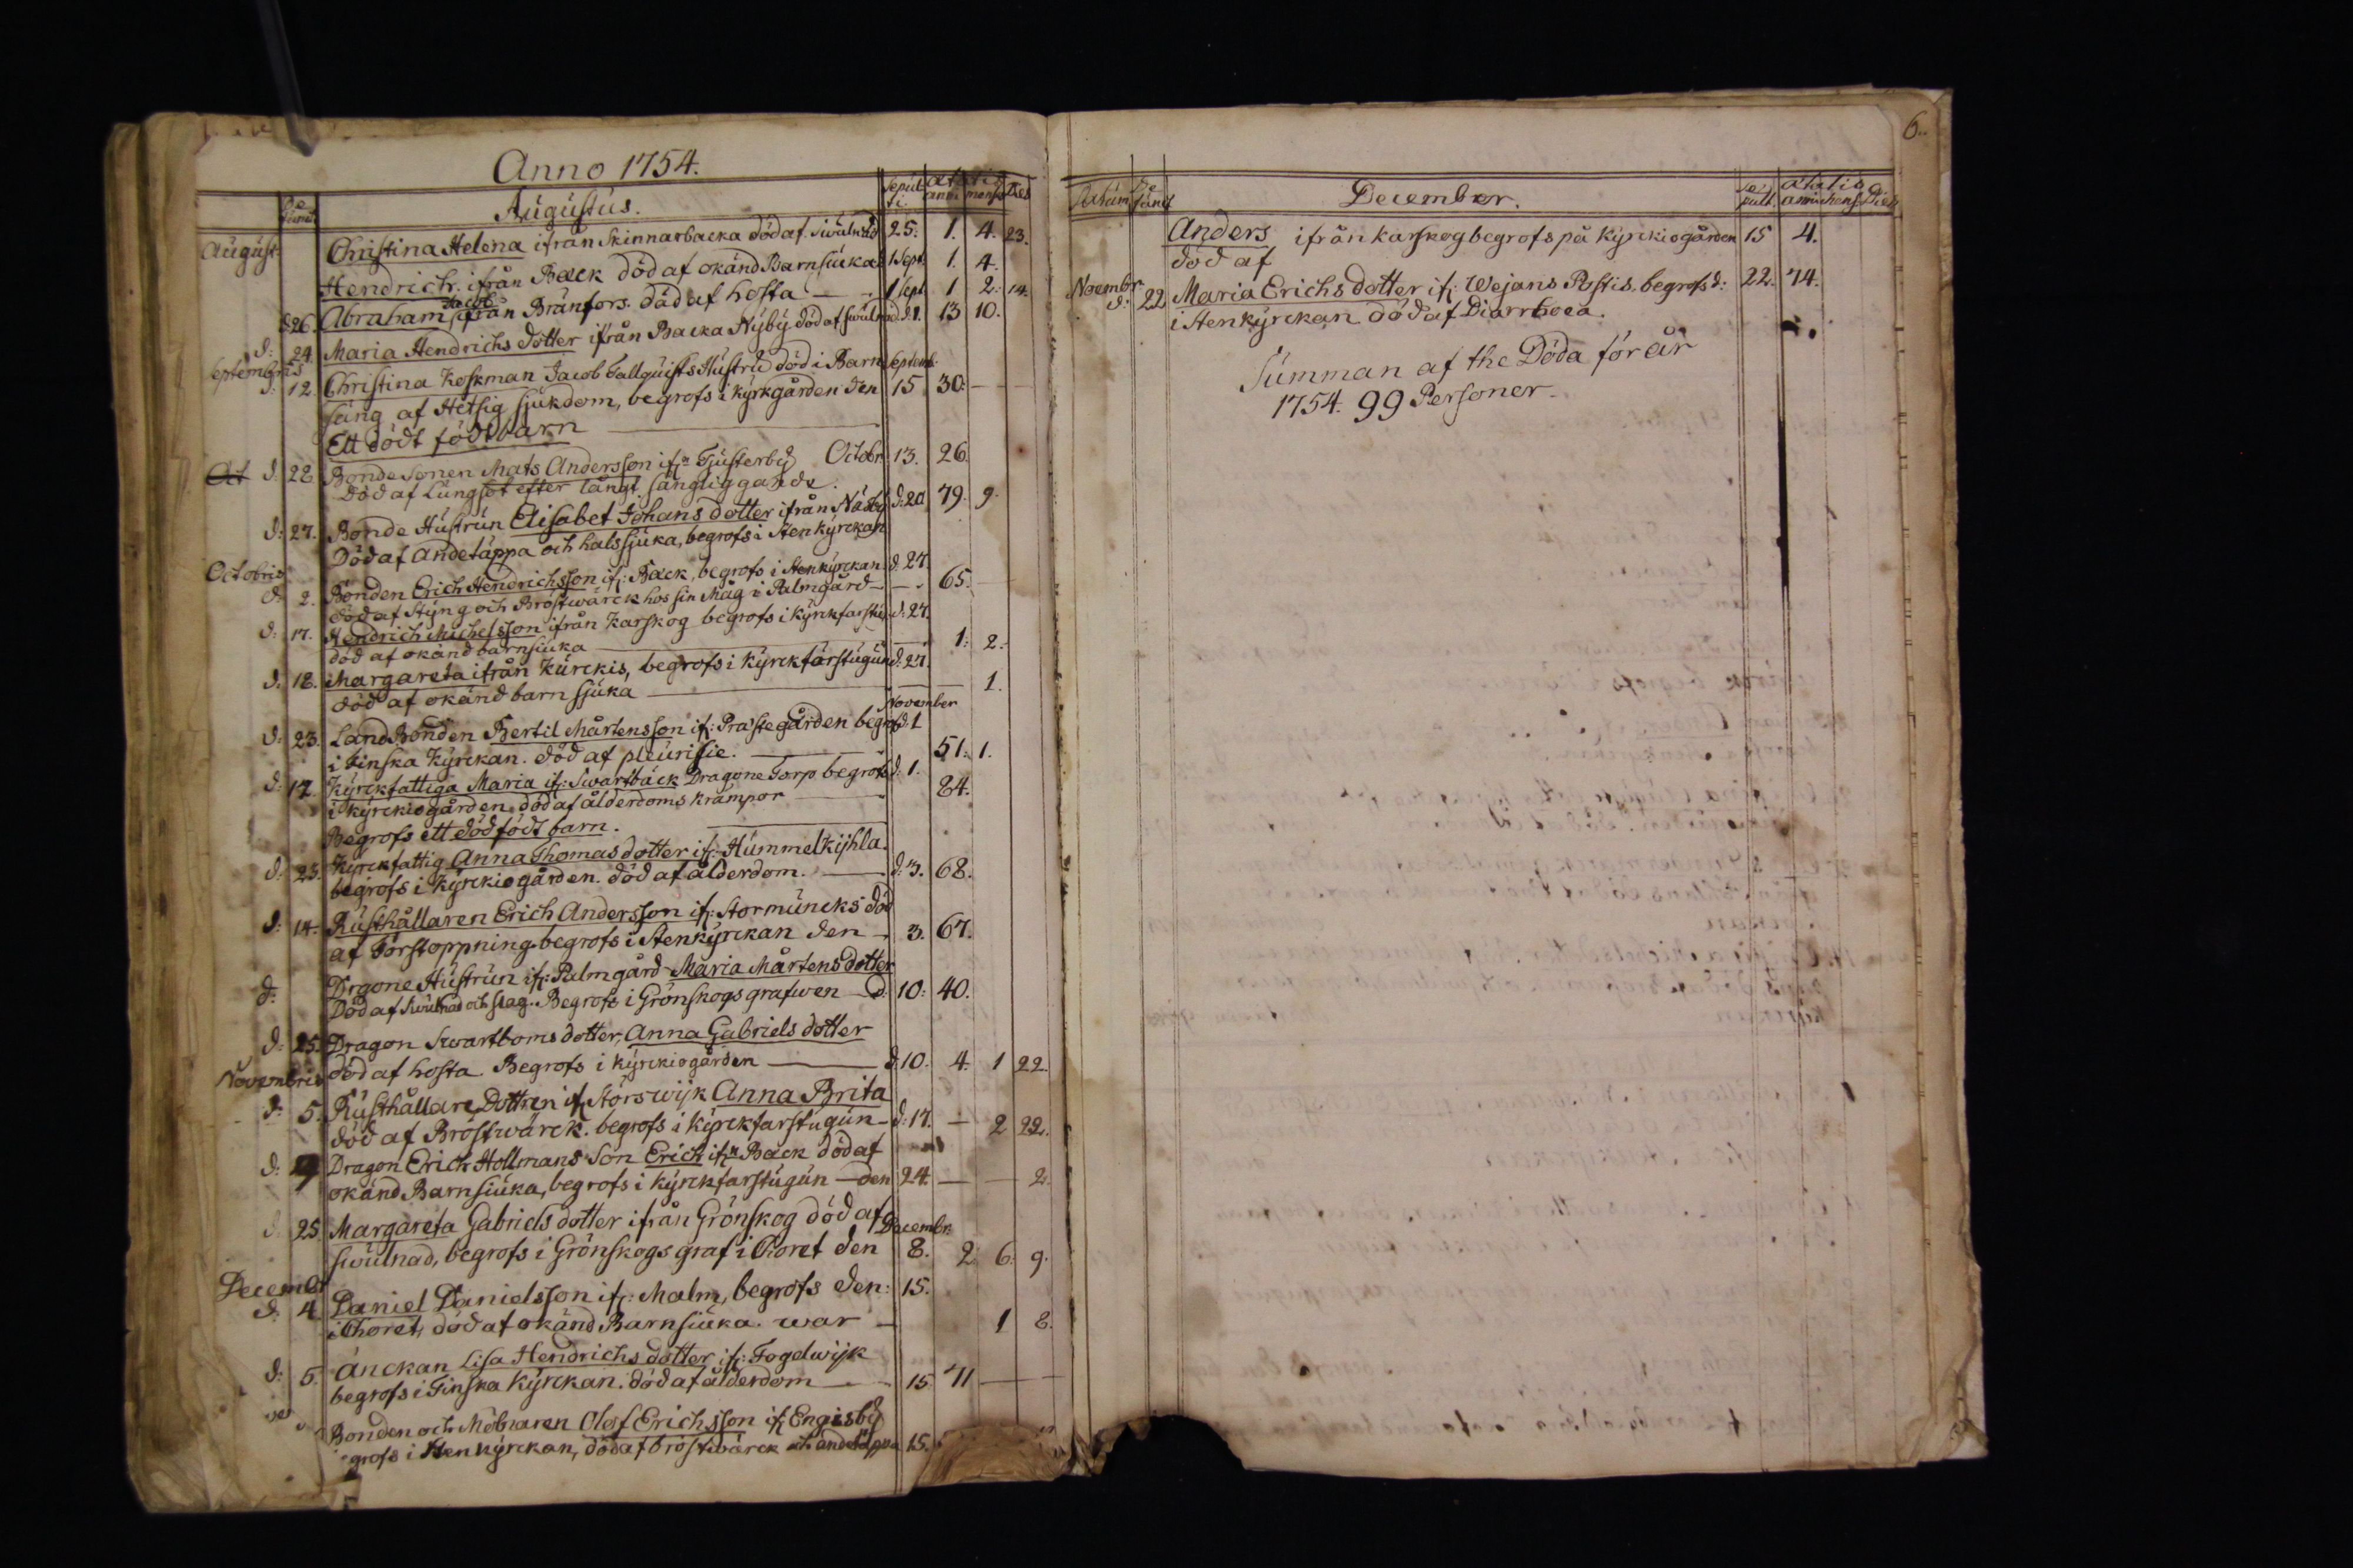 Anno 1754.
Defunct. Augustus. Sepulti. ætatis anni mens. Dies
August. Christina Helena ifrån Skinnarbacka död af Swulnad 25. 1. 4. 23.
Hendrich ifrån Back död af okänd Barnsiuka 1 Sept. 1. 4.
d. 26. Abraham Jacob ifrån Bränfors död af hosta 1 Sept 1 2. 14.
d: 24. Maria Hendrichs dotter ifrån Backa Nÿbÿ död af swulnad d. 1. 13 10.
Septembris Septemb.
d: 12. Christina Koskman Jacob Tallquists Hustru död i Barn
säng af Hetsig sjukdom, begrofs i kÿrkgården den 15 30.
Ett dödt födt barn
Oct d: 28 Bonde Sonen Mats Andersson ifn Tjusterbÿ Octobr. 13. 26.
död af Lungsot efter långt sängliggande.
d: 27. Bonde Hustrun Elisabet Johans dotter ifrån Näsbÿ d. 20 79. 9.
Död af andetäppa och halssjuka, begrofs i Stenkÿrckan
Octobris
d. 2. Bonden Erich Hendrichsson if: Back, begrofs i Stenkÿrckan d. 27.
död af Stÿng och Bröstwärck hos sin Måg i Palmgård 65.
d: 17. Hendrich Michelsson ifrån Karskog begrofs i kÿrckfarstu d. 27.
död af okänd barnsiuka 1: 2.
d. 18. Margareta ifrån Kurckis, begrofs i Kÿrckfarstugun d. 27.
död af okänd barn sjuka 1.
November
d: 23. LandBonden Bertil Mårtensson if: Prästegården begrof d. 1
i Finska Kÿrckan. död af pleurisie. 51. 1.
d: 17 Kÿrckfattiga Maria if: Swartback Dragone Torp begrofs d. 1.
i kÿrckiogården död af ålderdoms krämpor 84.
Begrofs ett dödfödt barn.
d: 23. Kÿrckfattig Anna Thomasdotter if: Hummelkÿhla.
begrofs i Kÿrckiogården. död af ålderdom. d. 3. 68.
d: 14. Rusthållaren Erich Andersson if: Stormuncks död
af Förstoppning begrofs i Stenkÿrckan den 3. 67.
d: Drgone Hustrun if: Palmgård Maria Mårtens dotter
Död af Swulnad och slag. Begrofs i Grönskogs grafwen d. 10: 40.
d: 25. Dragon Swartboms dotter, Anna Gabriels dotter
död af hosta. Begrofs i kÿrckiogården d. 10. 4. 1 22.
Novembris
d: 5. Rusthållare Dottren if Storswijk Anna Brita
död af Bröstwärck. begrofs i kÿrckfarstugun d. 17. – 2 22.
d: 9 Dragon Erich Hollmans Son Erich ifn Back död af
okänd Barnsiuka, begrofs i kÿrckfarstugun – den 24. – – 2.
d. 25. Margareta Gabriels dotter ifrån Grönskog död af Decembr.
swulnad, begrofs i Grönskogs graf i Choret den 8. 2 6. 9.
December
d. 4. Daniel Danielsson if: Malm, begrofs den: 15.
i Choret, död af okänd Barnsiuka. war 1 8.
d: 5. Änckan Lisa Hendrichs dotter if: Fogelwijk
begrofs i Finska Kÿrckan. död af ålderdom 15 71
Bonden och Möbnaren Olof Erichsson if Engisbÿ
grofs i Stenkÿrckan, död af bröstwärck och andetäppa 15.
6.
Natum Defunct December. Sepult. ætatis anni mens. Dies
Anders ifrån Karskog begrofs på Kÿrckiogården 15 4.
död af
Noembr. d: 22 Maria Erichs dotter if: Wejans Postis. begrofs d: 22. 74.
i Stenkÿrckan död af Diarrhoea.
Summan af the Döda för år
1754. 99 Personer.